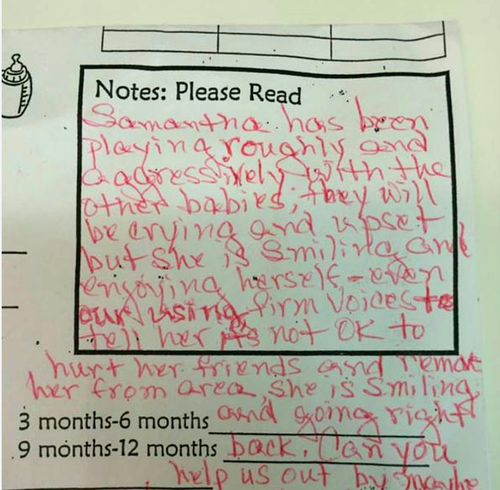 Notes: Please Read
Samantha has been
playing roughly and
aggressively with the
other babies; they will
be crying and upset
but she is smiling and
enjoying herself - even
our using firm voices to
tell her it's not OK to
hurt her friends and remove
her from area, she is smiling
3 months-6 months and going right
9 months-12 months back. Can you
help us out by maybe